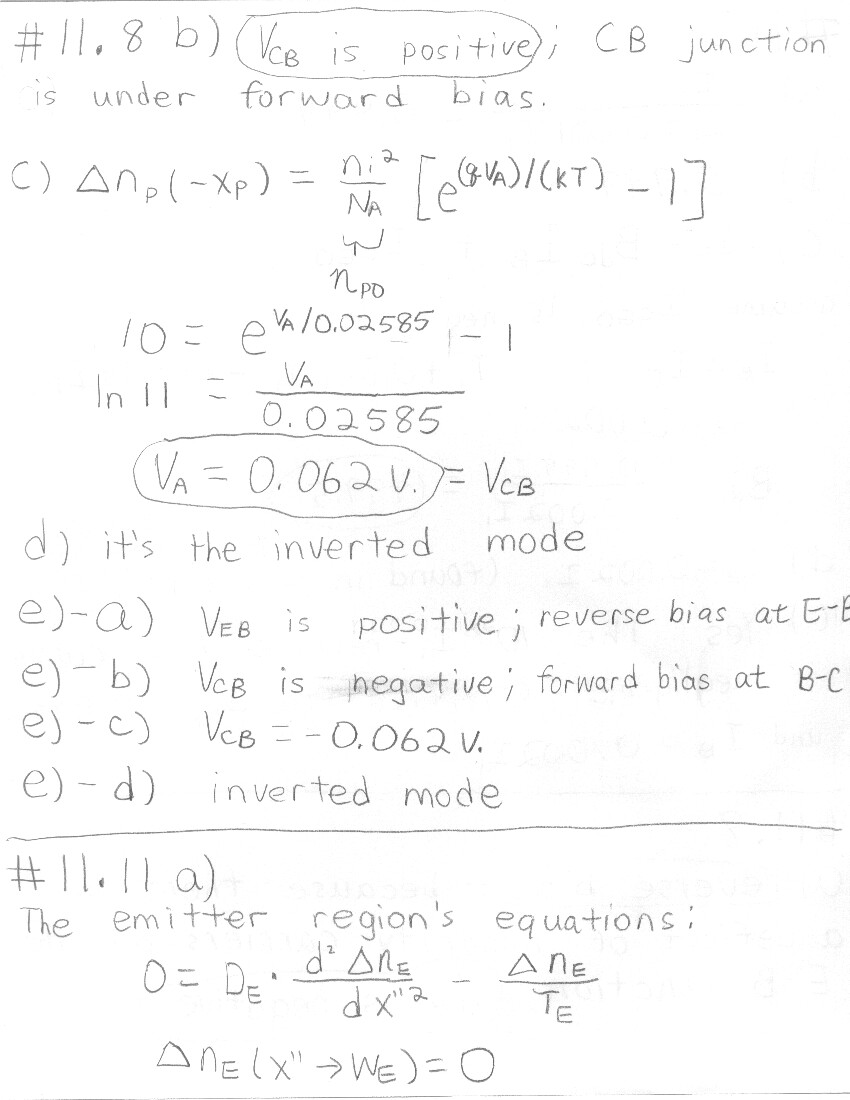 #11.8 b) V_CB is positive; CB junction
is under forward bias.
c) Δn_p(-x_p) = ni²/N_A [e^(qV_A)/(kT) - 1]
n_p0
10 = e^V_A/0.02585 - 1
ln 11 = V_A/0.02585
V_A = 0.062 V. = V_CB
d) it's the inverted mode
e)-a) V_EB is positive; reverse bias at E-B
e)-b) V_CB is negative; forward bias at B-C
e)-c) V_CB = -0.062 V.
e)-d) inverted mode
#11.11 a)
The emitter region's equations:
0 = D_E · d²Δn_E/dx"² - Δn_E/τ_E
Δn_E(x" → W_E) = 0